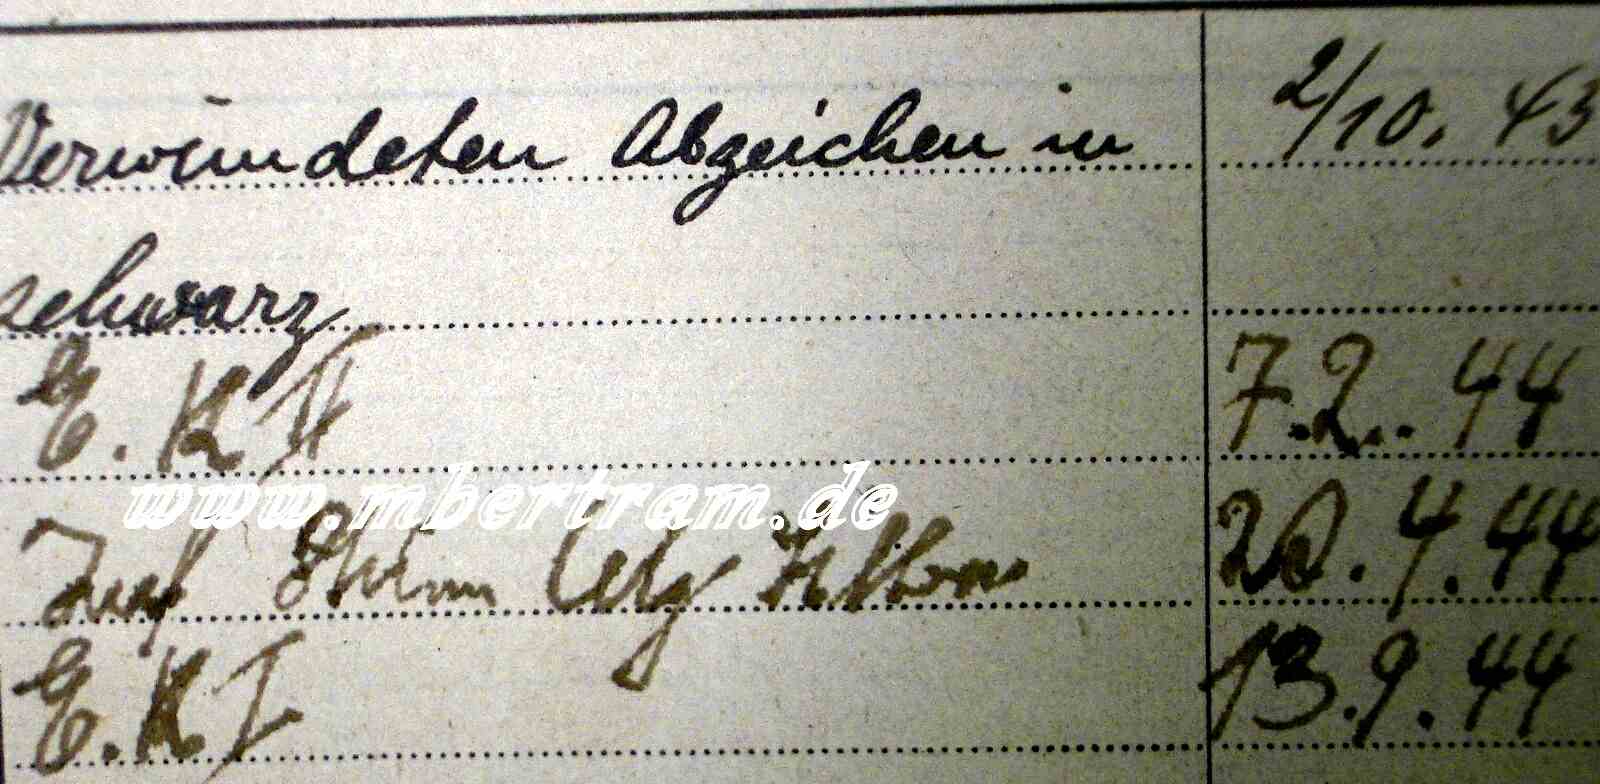 Verwundeten Abzeichen in 2/10. 43
schwarz
E. K II 7.2. 44
www.mbertram.de
Inf Sturm Abz 20.4.44
E.K I 13.9.44